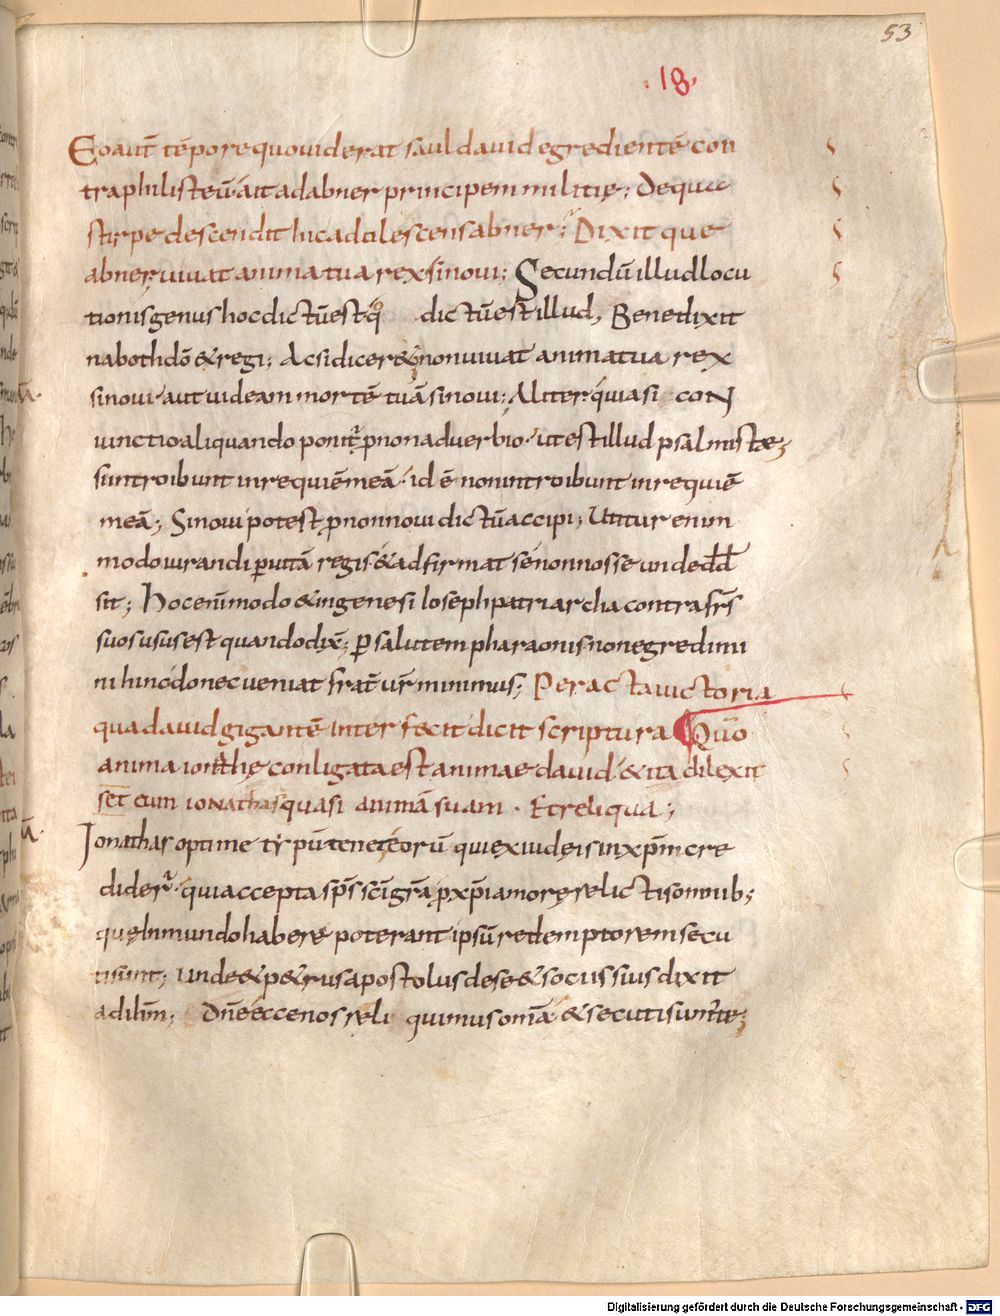 53
.18.
Eo aut̄ tēpore quo uiderat saul dauid egredientē con
tra philisteū ait ad abner principem militię; De qua
stirpe descendit hic adolescens abner; Dixitque
abner uiuat anima tua rex si noui; Secundū illud locu
tionis genus hoc dictū est q̊ dictū est illud, Benedixit
naboth dō & regi; Ac si dicer& non uiuat anima tua rex
si noui aut uideam mortē tuā si noui; Aliter quasi con
iunctio aliquando ponit̄ p non aduerbio. ut est illud psalmistae;
si introibunt in requiē meā. id ē non introibunt in requiē
meā; Si noui potest p non noui dictū accipi; Utitur enim
modo iurandi p uitā regis & adfirmat se non nosse unde dd̄
sit; Hoc eni modo & in genesi Ioseph patriarcha contra frs̄
suos usus est quando dix̄; P salutem pharaonis non egredimi
ni hinc donec ueniat frat̄ ur̄ minimus; Peracta uictoria
qua dauid gigantē interfecit dicit scriptura Quō
anima ionathę conligata est animae dauid & ita dilexit
set eum ionathas quasi animā suam. Et reliqua;
Ionathas optime typū tenet eorū qui ex iudeis in xpm̄ cre
dider̄. qui accepta sps̄ sci grā p xpi amore relictis omnib;
quę in mundo habere poterant ipsū redemptorem secu
ti sunt; unde & p&rus apostolus de se & sociis suis dixit
ad ihm̄; Dnē ecce nos reliquimus omā & secuti sum te;
Digitalisierung gefördert durch die Deutsche Forschungsgemeinschaft - DFG